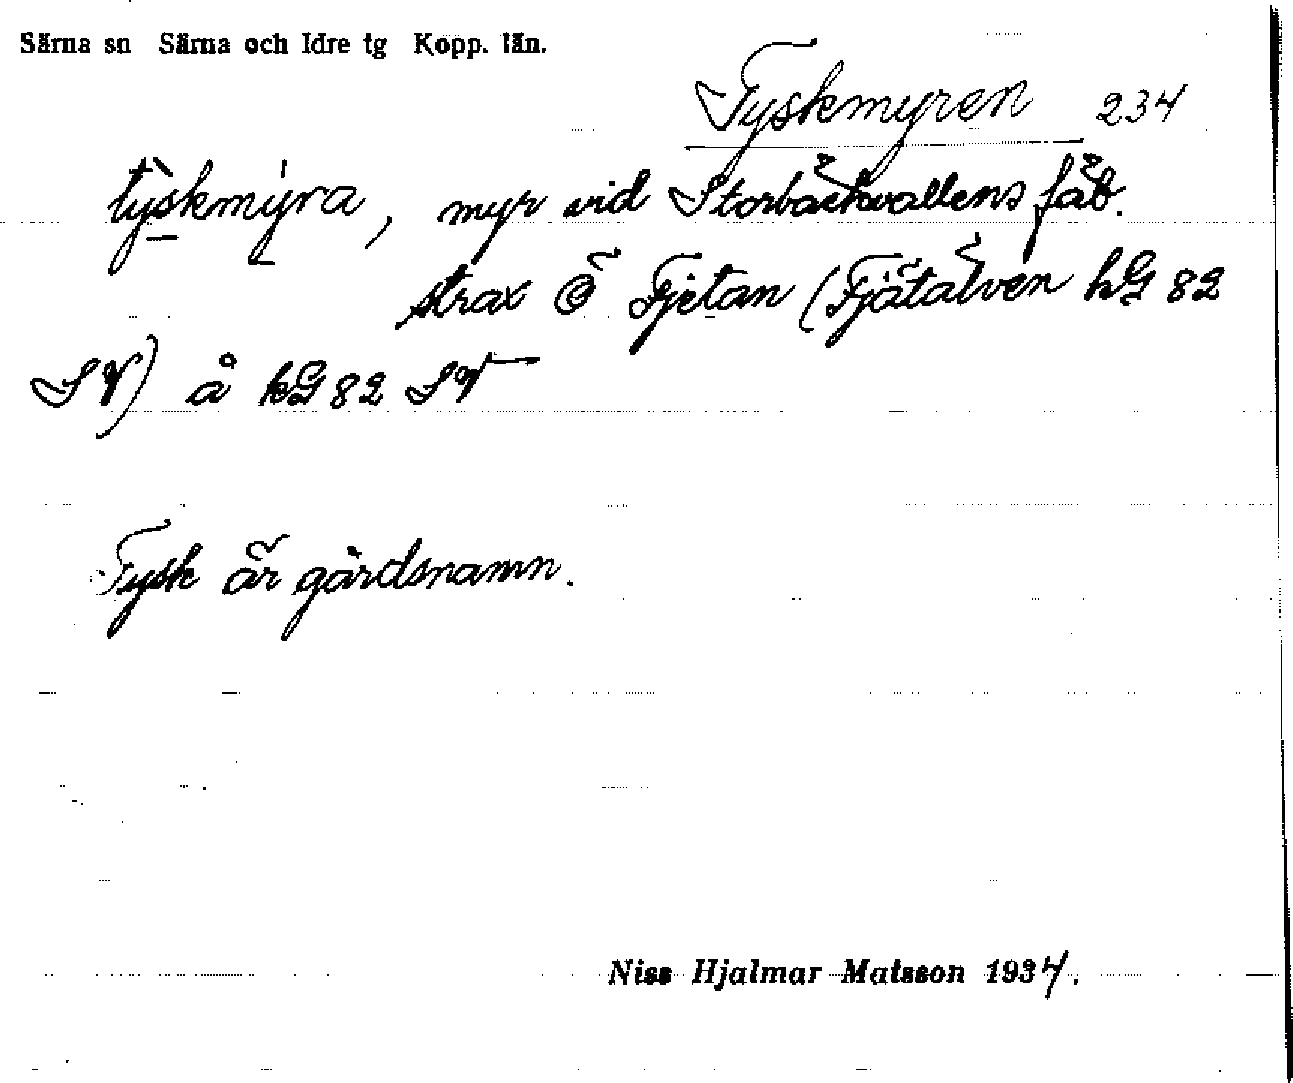 Särna sn Särna och Idre tg Kopp. län.
Tyskmyren 234
tỳskmýra, myr vid Storbäckvallens fäb.
strax Ö Fjetan (Fjätälven hG 82
SV) å hG 82 SV
Tysk är gårdsnamn.
Niss Hjalmar Matsson 1934.